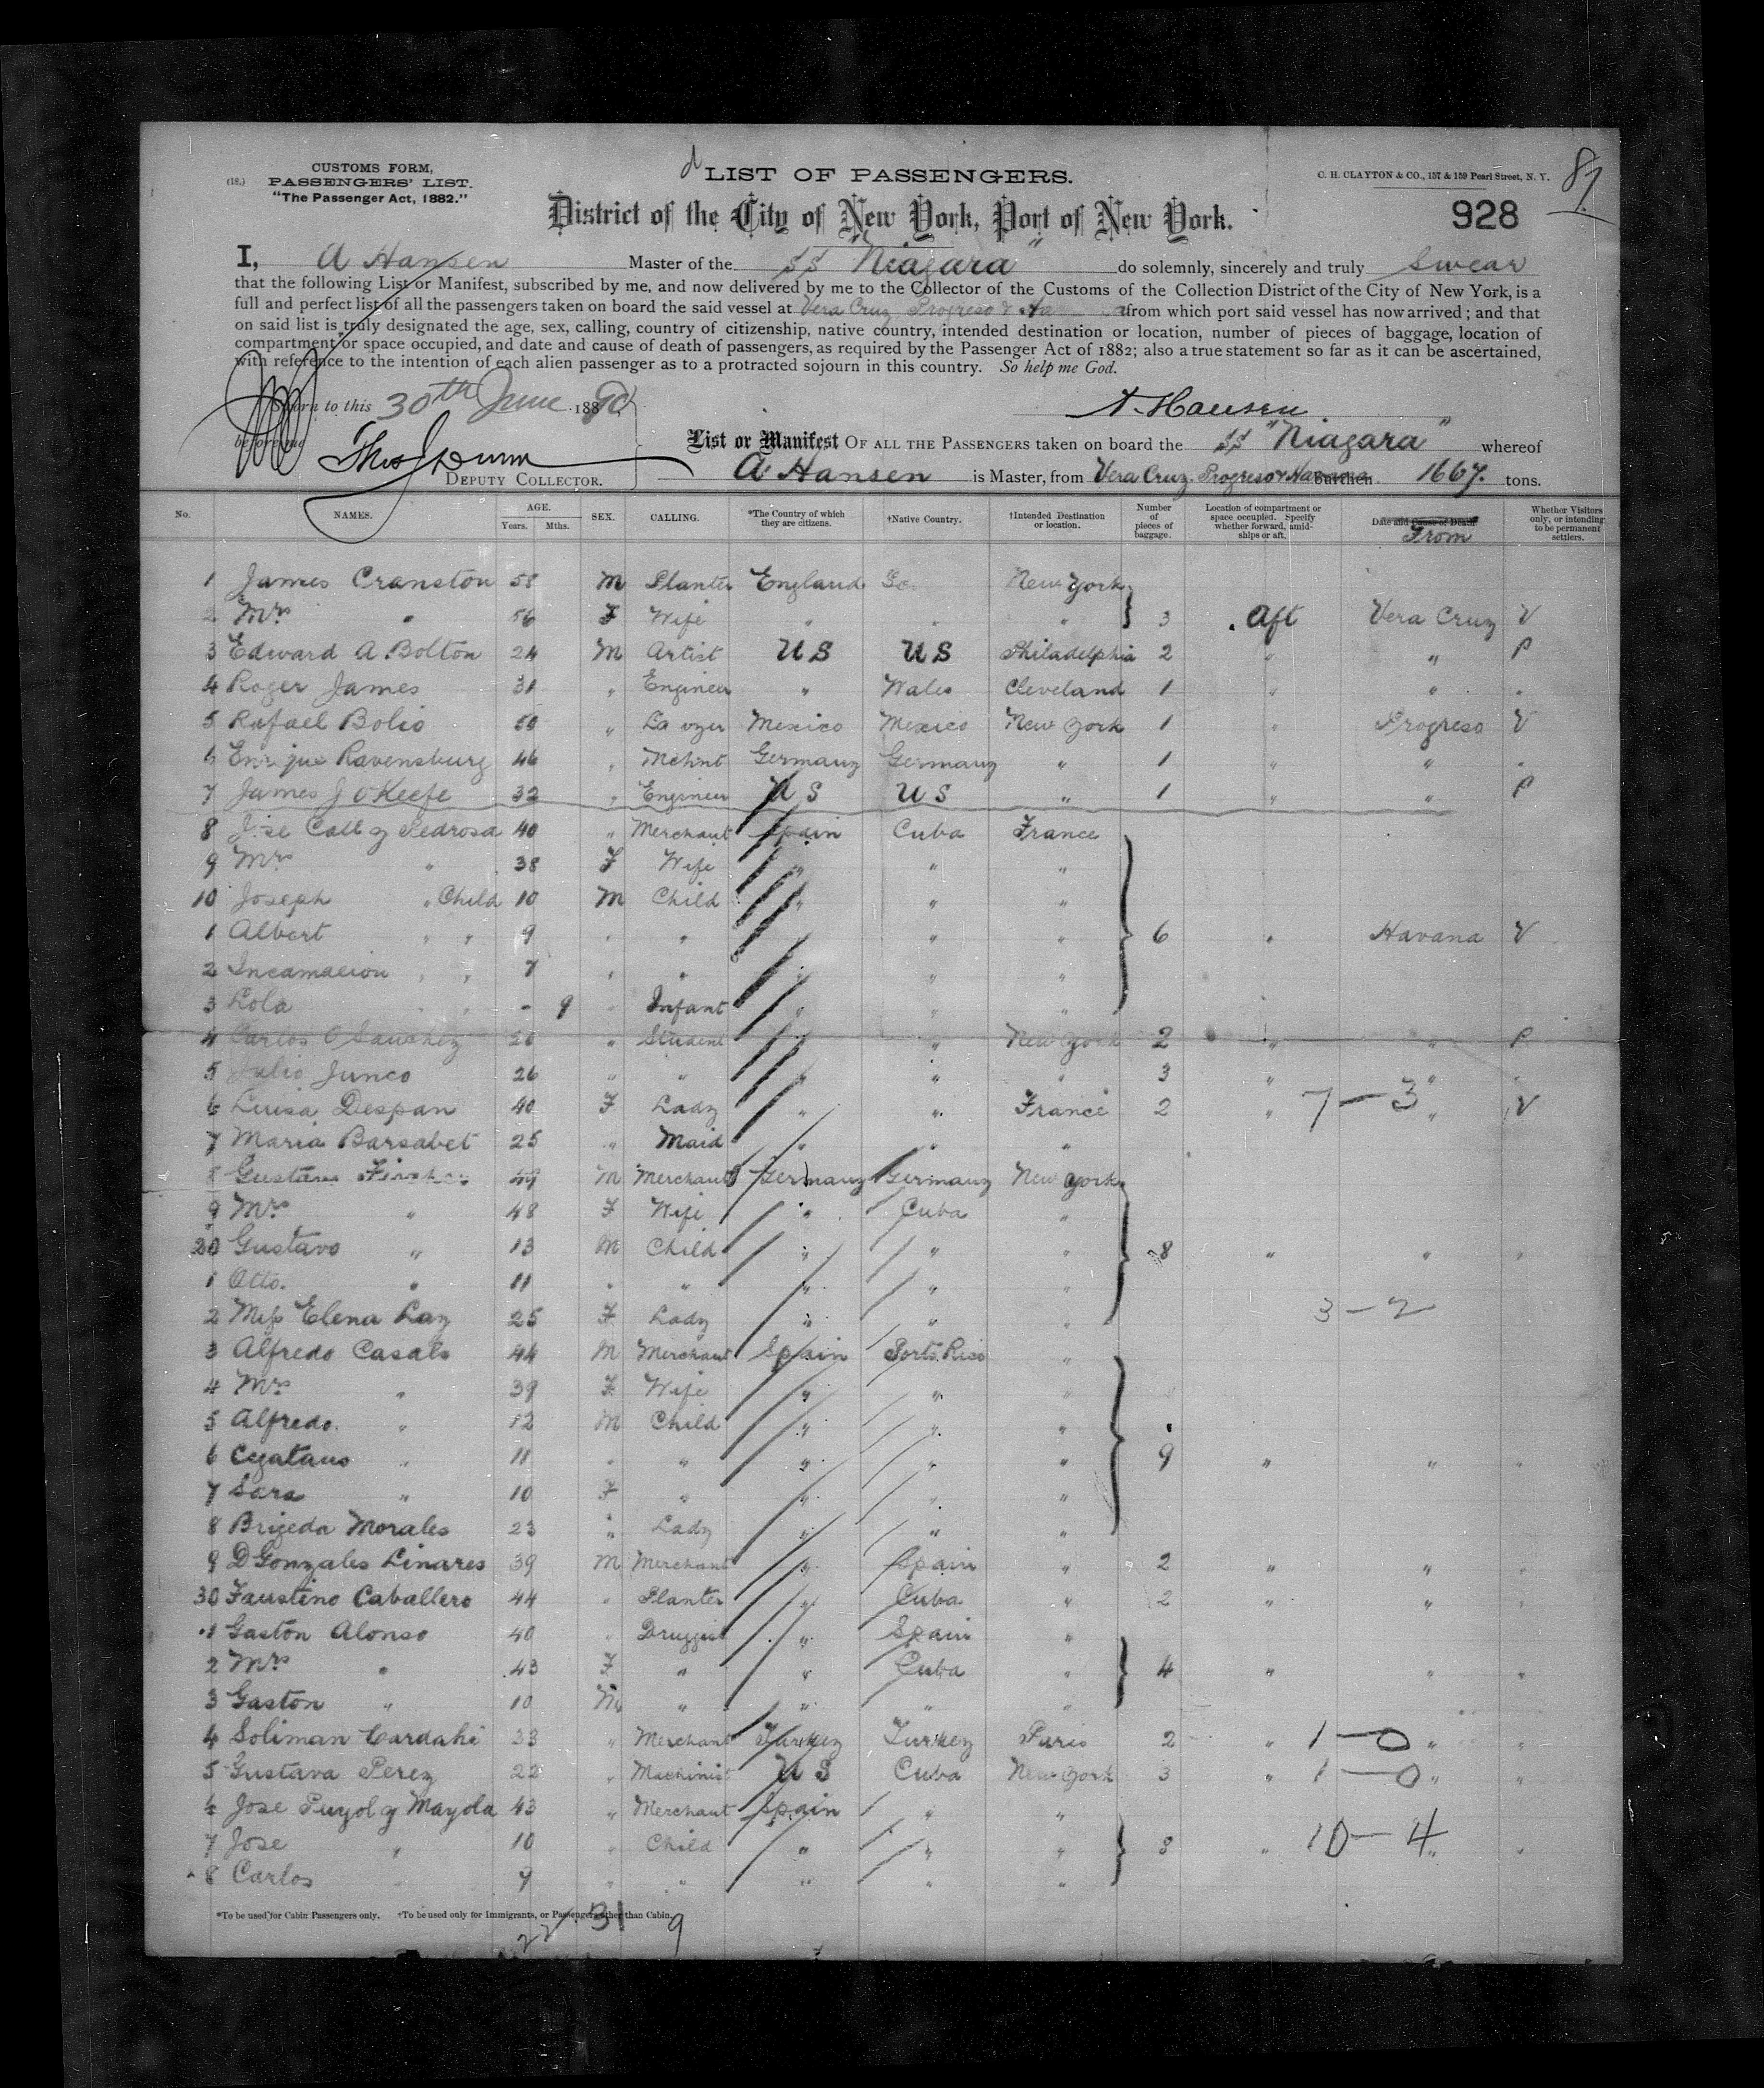 d
CUSTOMS FORM,
(16.) PASSENGERS' LIST.
"The Passenger Act, 1882."
LIST OF PASSENGERS.
C. H. CLAYTON & CO., 157 & 159 Pearl Street, N. Y.
District of the City of New York, Port of New York.
928
I, A Hansen Master of the SS "Niagara" do solemnly, sincerely and truly swear
that the following List or Manifest, subscribed by me, and now delivered by me to the Collector of the Customs of the Collection District of the City of New York, is a
full and perfect list of all the passengers taken on board the said vessel at Vera Cruz Progreso & from which port said vessel has now arrived; and that
on said list is truly designated the age, sex, calling, country of citizenship, native country, intended destination or location, number of pieces of baggage, location of
compartment or space occupied, and date and cause of death of passengers, as required by the Passenger Act of 1882; also a true statement so far as it can be ascertained,
with reference to the intention of each alien passenger as to a protracted sojourn in this country. So help me God.
Sworn to this 30th June 1890
A. Hansen
before me
Thos J Dunn
DEPUTY COLLECTOR.
List or Manifest OF ALL THE PASSENGERS taken on board the SS "Niagara" whereof
A Hansen is Master, from Vera Cruz. Progreso & Havana burthen 1667. tons.
No. NAMES. AGE. Years. Mths. SEX. CALLING. *The Country of which they are citizens. †Native Country. †Intended Destination or location. Number of pieces of baggage. Location of compartment or space occupied. Specify whether forward, amidships or aft. Date and Cause of Death From Whether Visitors only, or intending to be permanent settlers.
1 James Cranston 58 M Planter England New York
2 Mrs " 56 F Wife " " " 3 Aft Vera Cruz V
3 Edward A Bolton 24 M Artist U S U S Philadelphia 2 " " P
4 Roger James 31 " Engineer " Wales Cleveland 1 " " "
5 Rafael Bolio 50 " Lawyer Mexico Mexico New York 1 " Progreso V
6 Enrique Ravensburg 46 " Mchnt Germany Germany " 1 " " "
7 James J O'Keefe 32 " Engineer U S U S " 1 " " P
8 Jose Call y Pedrosa 40 " Merchant Spain Cuba France
9 Mrs " 38 F Wife " " "
10 Joseph " Child 10 M Child " " "
1 Albert " " 9 " " " " " 6 " Havana V
2 Incarnacion " " 7 " " " " "
3 Lola " " - 9 " Infant " " "
4 Carlos O Sanchez 20 " Student " " New York 2 " " P
5 Julio Junco 26 " " " " " 3 " " "
6 Luisa Despan 40 F Lady " " France 2 " 7-3 " V
7 Maria Barsabet 25 " Maid " " "
8 Gustavo 49 M Merchant Germany Germany New York
9 Mrs " 48 F Wife " Cuba "
20 Gustavo " 13 M Child " " " 8 " " "
1 Otto. " 11 " " " " "
2 Miss Elena Lay 25 F Lady " " " 3-2
3 Alfredo Casals 44 M Merchant Spain Porto Rico "
4 Mrs " 39 F Wife " " "
5 Alfredo. " 12 M Child " " "
6 Cayatano " 11 " " " " " 9 " " "
7 Sara " 10 F " " " "
8 Brigeda Morales 23 " Lady " " "
9 D Gonzales Linares 39 M Merchant " Spain " 2 " " "
30 Faustino Caballero 44 " Planter " Cuba " 2 " " "
1 Gaston Alonso 40 " Druggist " Spain "
2 Mrs " 43 F " " Cuba " 4 " " "
3 Gaston " 10 M " " " "
4 Soliman Cardahi 33 " Merchant Turkey Turkey Paris 2 " 1-0 " "
5 Gustava Perez 22 " Machinist U S Cuba New York 3 " 1-0 " "
6 Jose Puyol y Mayola 43 " Merchant Spain " "
7 Jose " 10 " Child " " " 8 " 10-4 " "
8 Carlos " 9 " " " " "
*To be used for Cabin Passengers only. †To be used only for Immigrants, or Passengers other than Cabin.
22 31 9